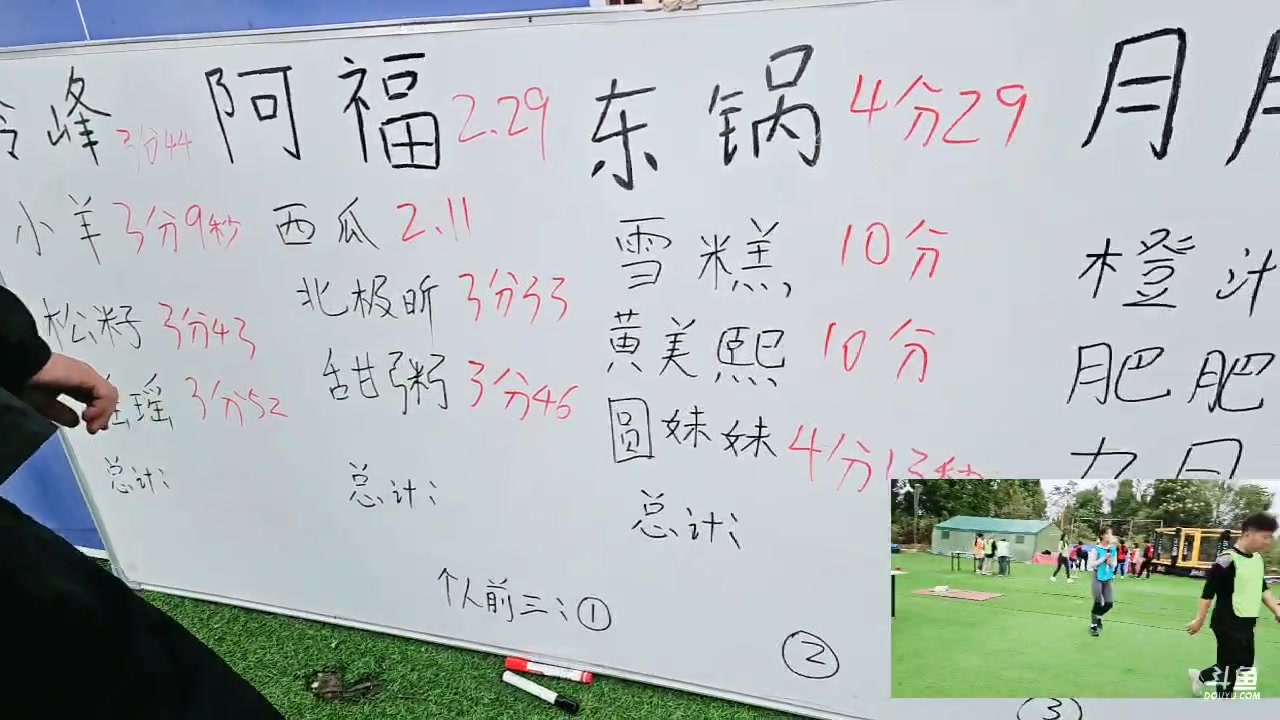 峰 3分44
小羊 3分9秒
松籽 3分43
瑶 3分52
总计:
阿福 2.29
西瓜 2.11
北极昕 3分33
甜粥 3分46
总计:
东锅 4分29
雪糕, 10分
黄美熙 10分
圆妹妹 4分13秒
总计:
月
橙汁
肥肥
个人前三: ①
②
③
斗鱼
DOUYU.COM